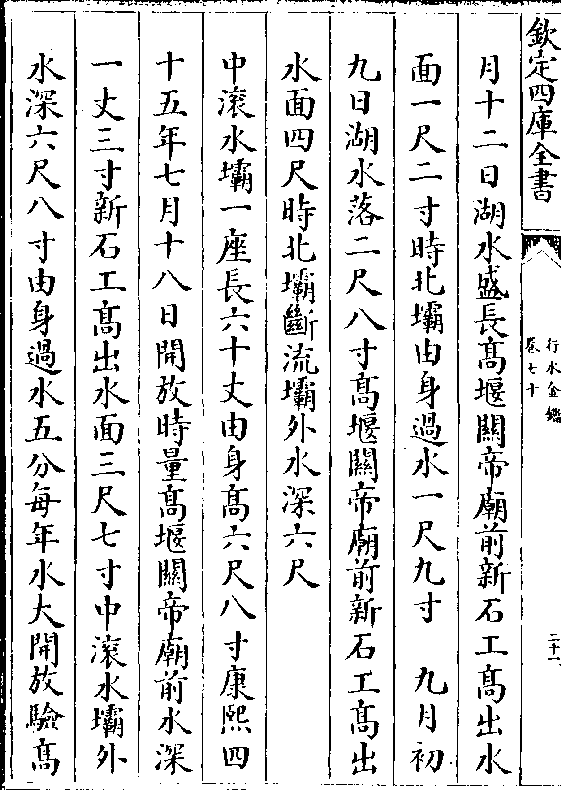 欽定四庫全書
行水金鑑
卷七十
二十一
月十二日湖水盛長髙堰關帝廟前新石工髙出水
面一尺二寸時北壩由身過水一尺九寸　九月初
九日湖水落二尺八寸髙堰關帝廟前新石工髙出
水面四尺時北壩斷流壩外水深六尺
中滾水壩一座長六十丈由身髙六尺八寸康熙四
十五年七月十八日開放時量髙堰關帝廟前水深
一丈三寸新石工髙出水面三尺七寸中滾水壩外
水深六尺八寸由身過水五分每年水大開放驗髙